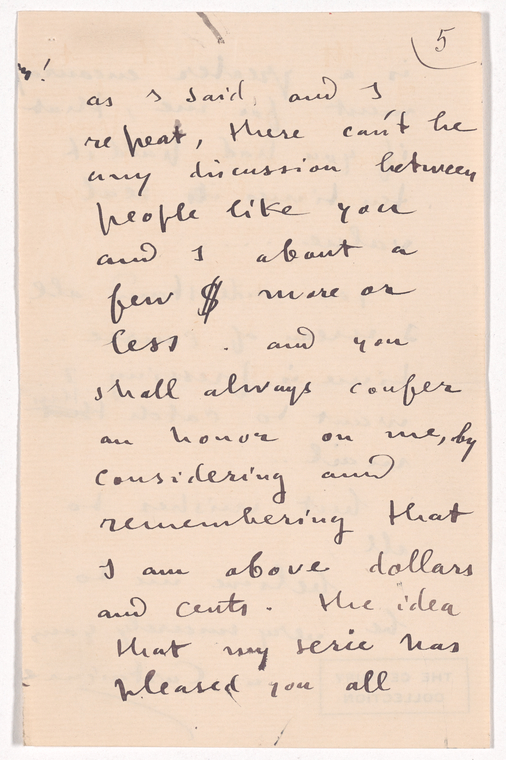 5
as I said, and I
repeat, there can't be
any discussion between
people like you
and I about a
few $ more or
less. and you
shall always confer
an honor on me, by
considering and
remembering that
I am above dollars
and cents. The idea
that my serie has
pleased you all